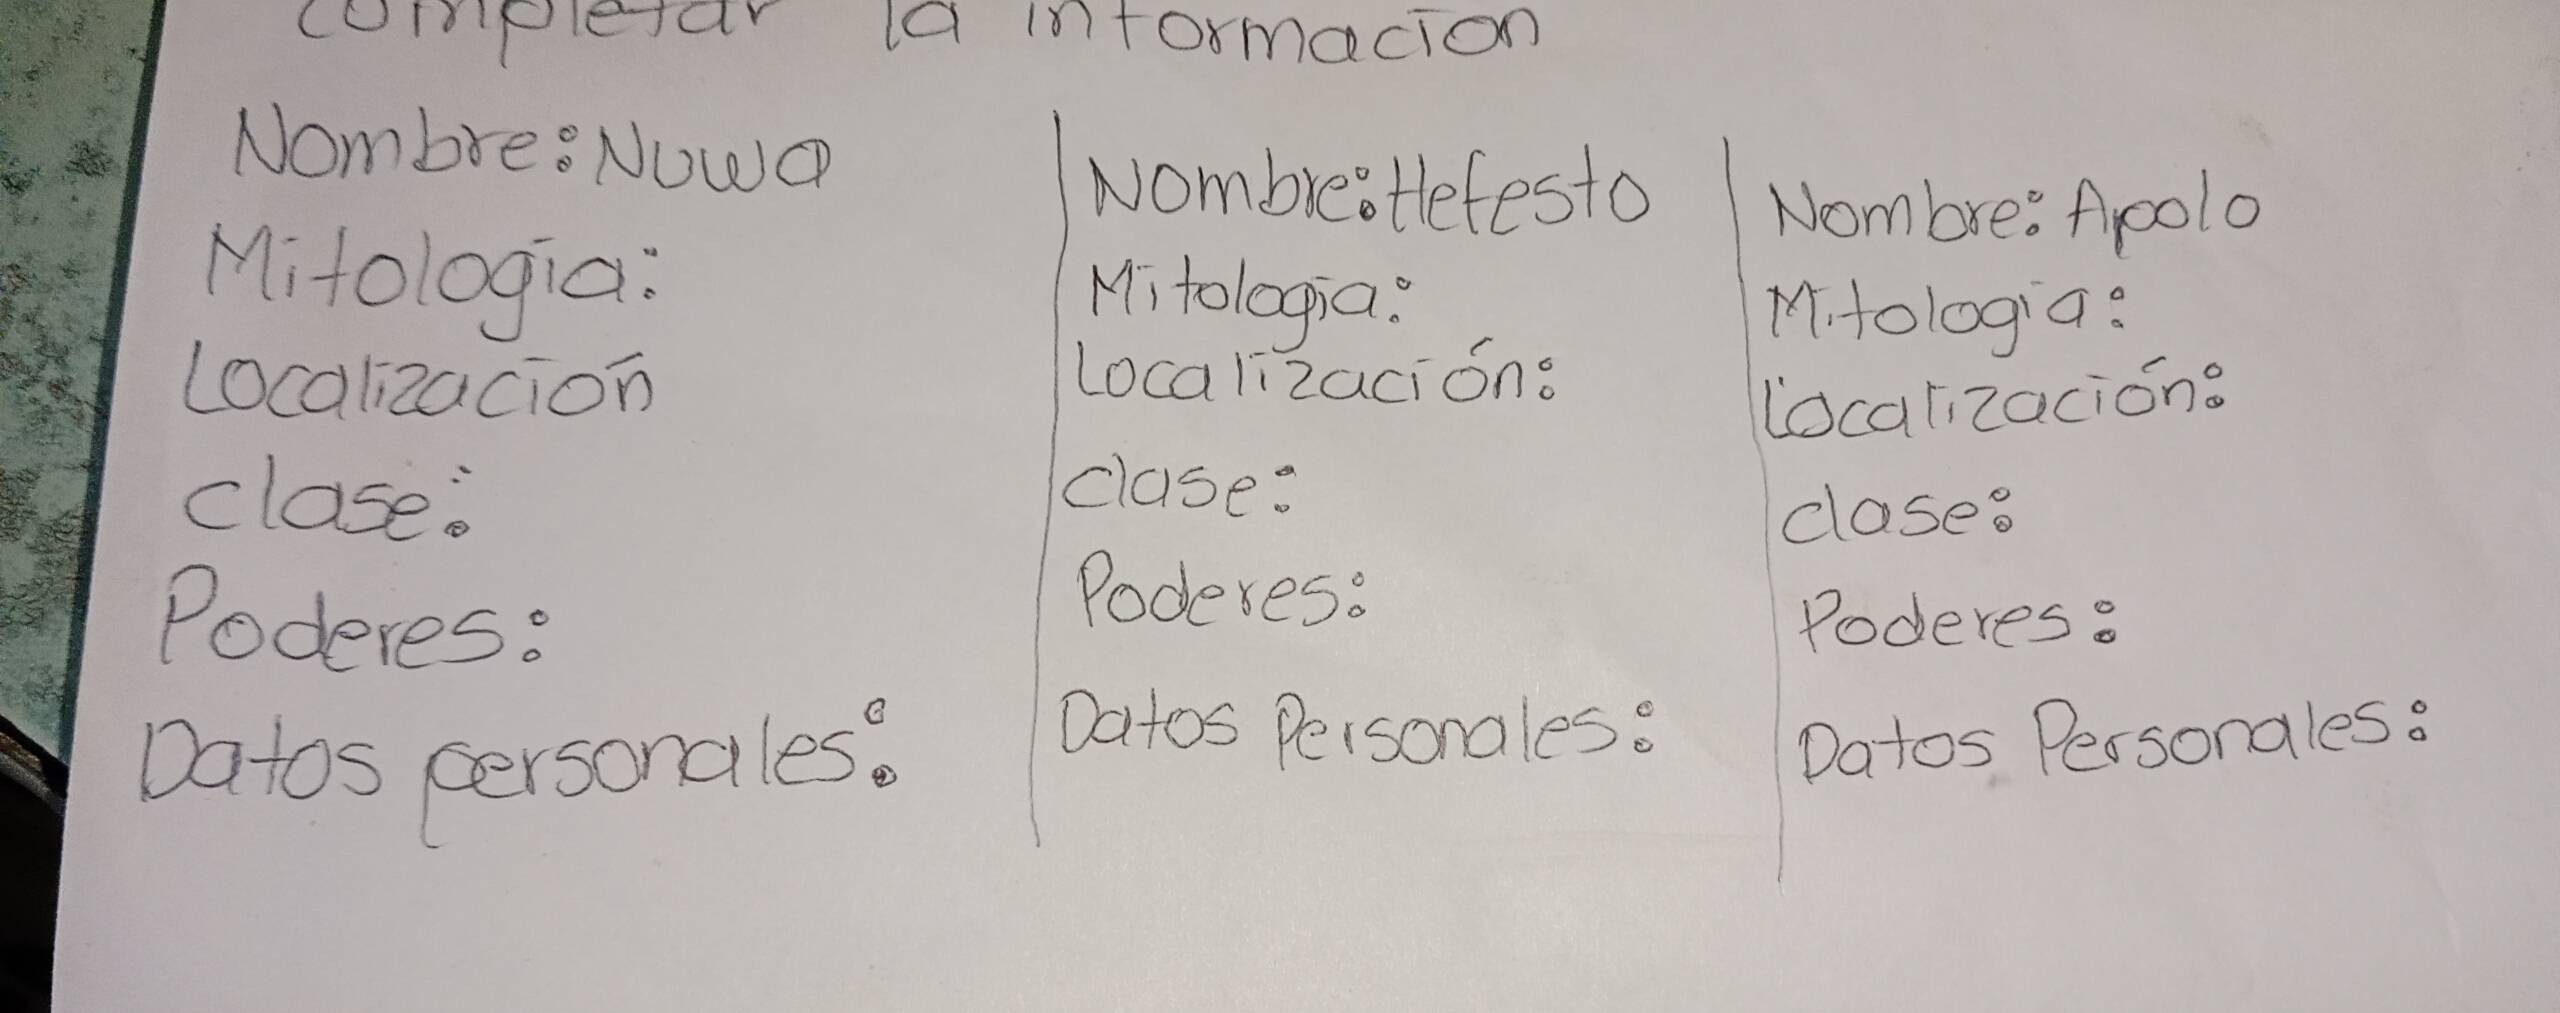 completar la información
Nombre: Nuwa
Mitología:
Localización
clase:
Poderes:
Datos personales:
Nombre: Hefesto
Mitología:
Localización:
clase:
Poderes:
Datos Personales:
Nombre: Apolo
Mitología:
Localización:
clase:
Poderes:
Datos Personales: